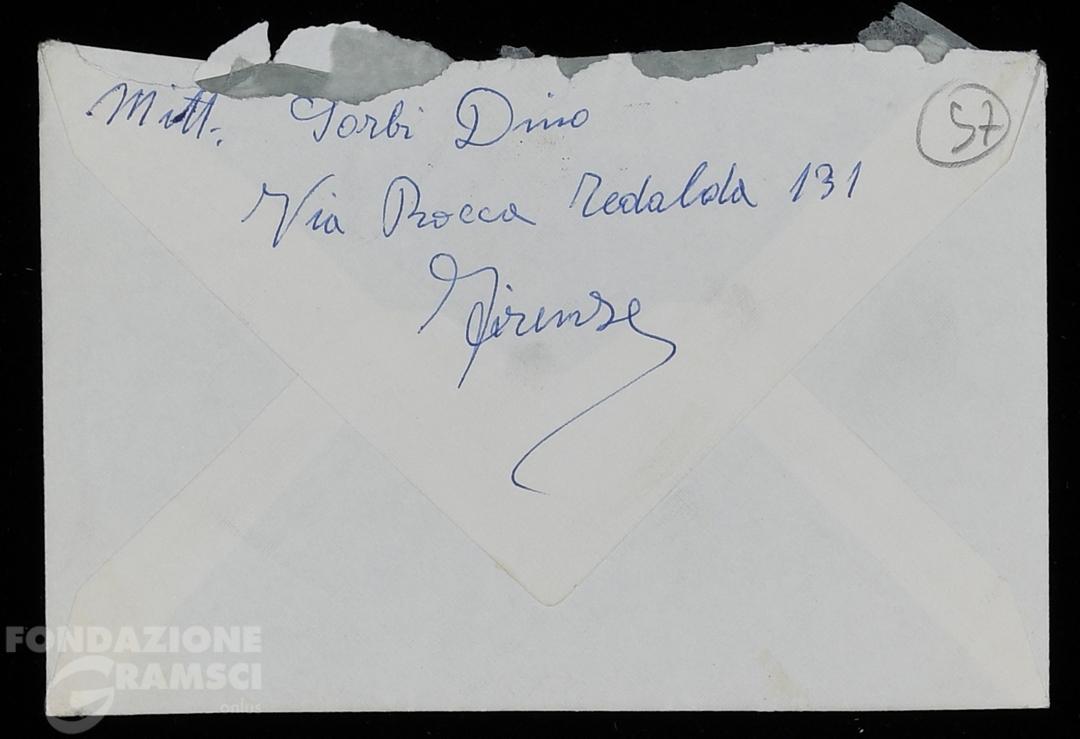 Mitt. Sorbi Dino
57
Via Rocca Tedalda 131
Firenze
FONDAZIONE
GRAMSCI
onlus